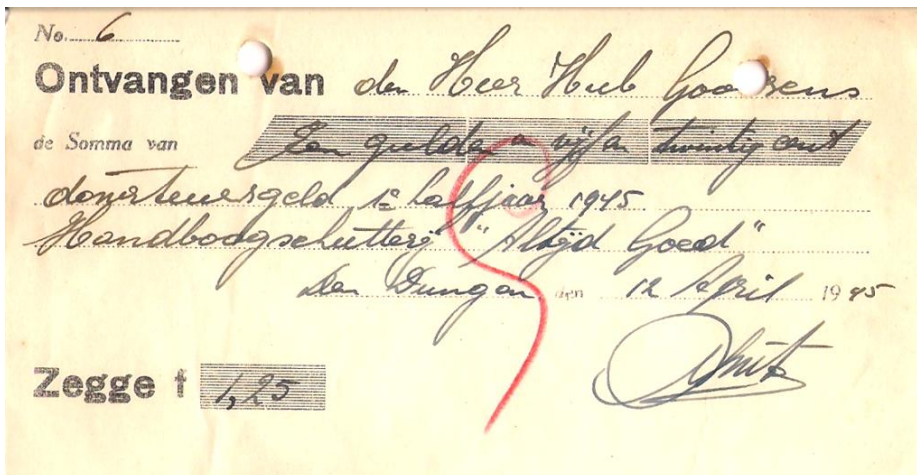 No. 6
Ontvangen van den Heer Hub Goossens
de Somma van Een gulden en vijf en twintig cent
donateursgeld 1e halfjaar 1945
Handboogschutterij "Altijd Goed"
Den Dungen, den 12 April 1945
Zegge f 1,25